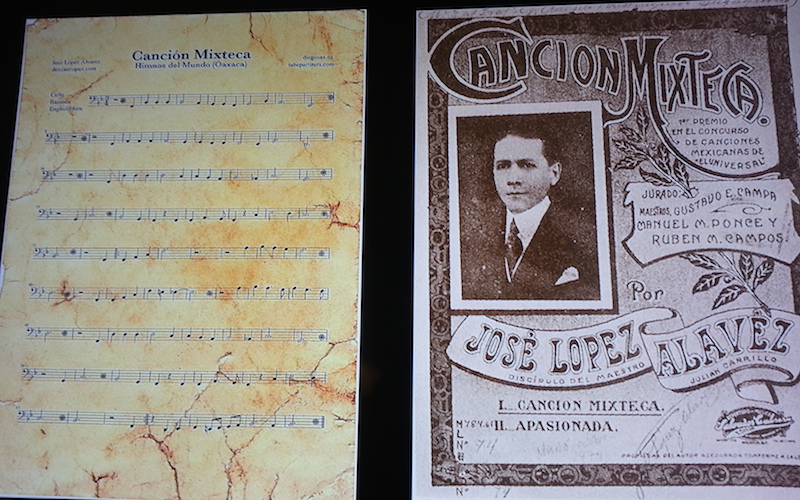 Canción Mixteca
Himnos del Mundo (Oaxaca)
José López Alavez
tubepartitura.com
Cello
CANCION MIXTECA.
1er PREMIO
EN EL CONCURSO
DE CANCIONES
MEXICANAS DE
"EL UNIVERSAL"
JURADO:
MAESTROS, GUSTAVO E. CAMPA
MANUEL M. PONCE Y
RUBEN M. CAMPOS
Por
JOSÉ LOPEZ ALAVÉZ
DISCÍPULO DEL MAESTRO JULIAN CARRILLO
I._ CANCION MIXTECA.
II._ APASIONADA.
PROPIEDAD DEL AUTOR ASEGURADA CONFORME A LA LEY